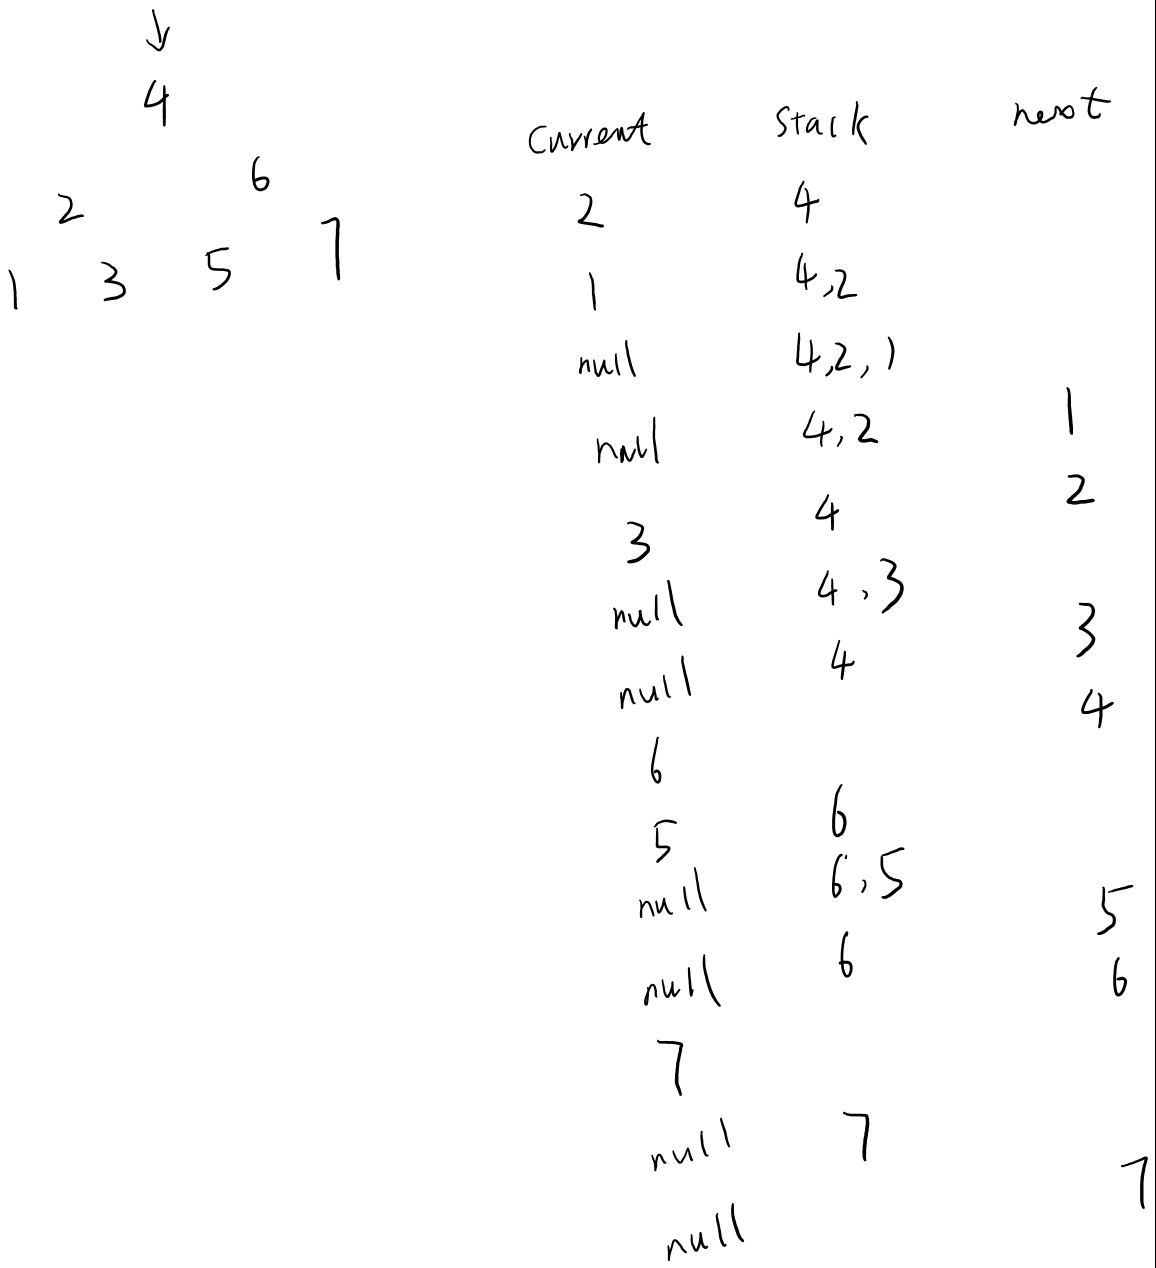 ↓
4
6
2
1 3 5 7
Current Stack next
2 4
1 4,2
null 4,2,1
null 4,2 1
3 4 2
null 4,3
null 4 3
6 4
5 6
null 6,5
null 6 5
7 6
null 7
null 7